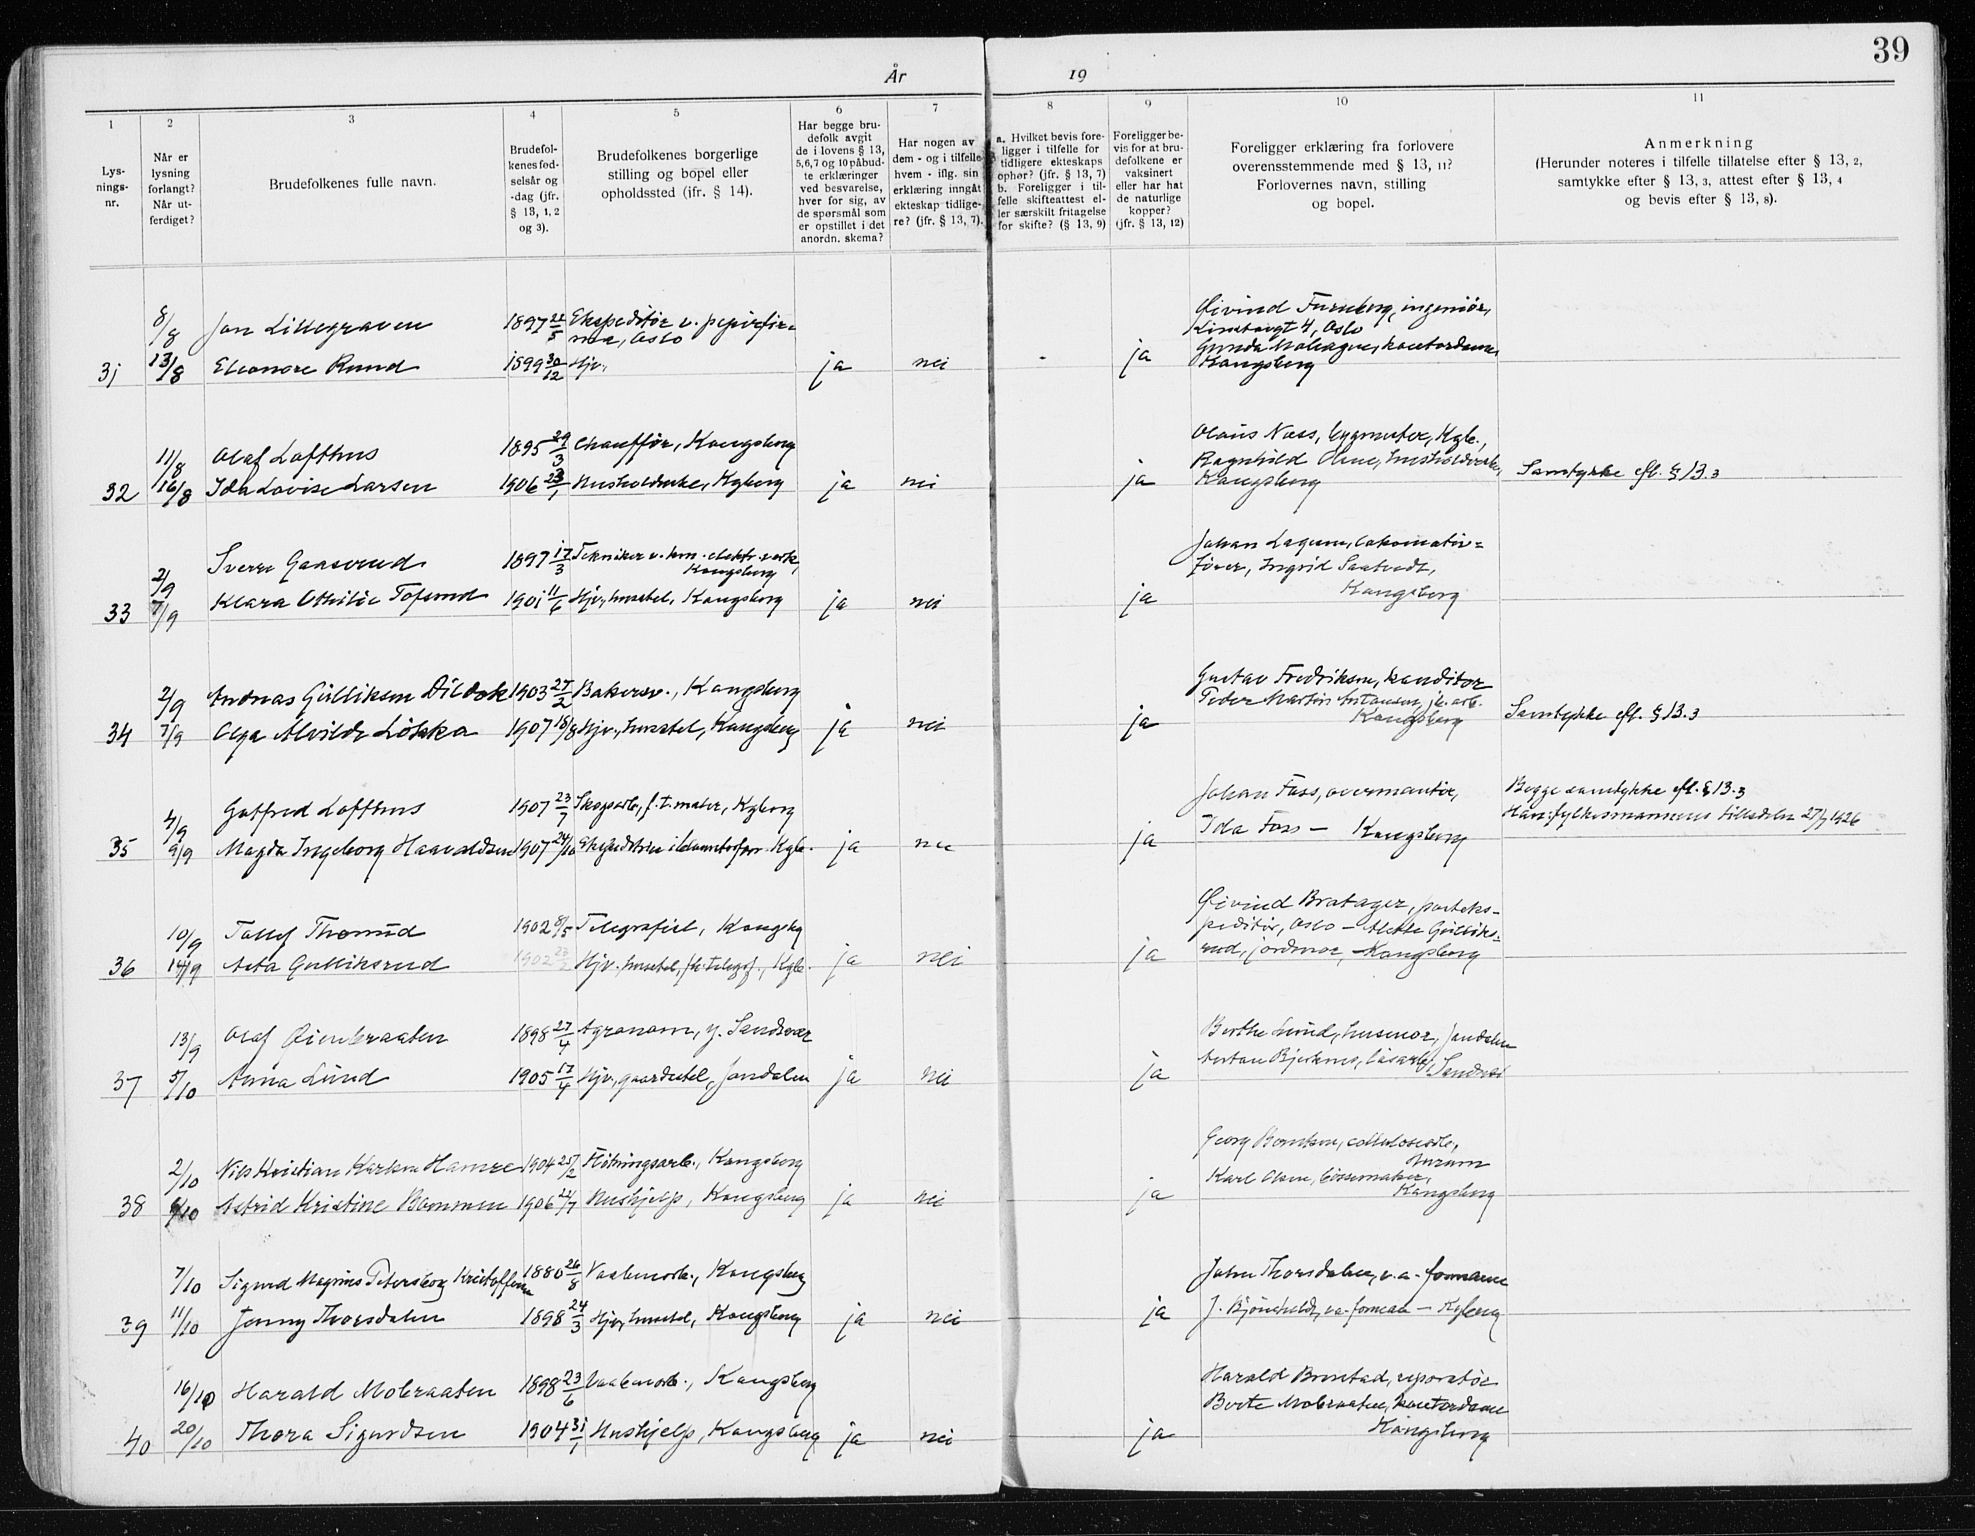 39
År 19
1 2 3 4 5 6 7 8 9 10 11
Lysnings-nr.
Når er lysning forlangt? Når utferdiget?
Brudefolkenes fulle navn.
Brudefolkenes fødselsår og -dag (jfr. § 13, 1, 2 og 3).
Brudefolkenes borgerlige stilling og bopel eller opholdssted (jfr. § 14).
Har begge brudefolk avgit de i lovens § 13, 5,6,7 og 10 påbudte erklæringer ved besvarelse, hver for sig, av de spørsmål som er opstillet i det anordn. skema?
Har nogen av dem - og i tilfelle hvem - iflg. sin erklæring inngått ekteskap tidligere? (jfr. § 13, 7).
a. Hvilket bevis foreligger i tilfelle for tidligere ekteskaps ophør? (jfr. § 13, 7) b. Foreligger i tilfelle skifteattest eller særskilt fritagelse for skifte? (§ 13, 9)
Foreligger bevis for at brudefolkene er vaksinert eller har hat de naturlige kopper? (jfr. § 13, 12)
Foreligger erklæring fra forlovere overensstemmende med § 13, 11? Forlovernes navn, stilling og bopel.
Anmerkning (Herunder noteres i tilfelle tillatelse efter § 13, 2, samtykke efter § 13, 3, attest efter § 13, 4 og bevis efter § 13, 8).
8/8 Jon Lillegraven 1897 Ekspeditør v. papirfirma, Oslo Øivind Furuberg, ingeniør, Oslo
31 13/8 Eleonore Rund 1899 30/12 Hjv. ja nei - ja Gunda kontordame, Kongsberg
11/8 Olaf Lofthus 1895 29/3 Chauffør, Kongsberg Olaus Næss, bygmester, Kgb.,
32 16/8 Ida Lovise Larsen 1906 23/1 Kgberg ja nei ja Ragnhild Kongsberg Samtykke efl. § 13.3
2/9 Sverre Gaasrud 1897 17/3 Tekniker v. kom. elektr. verk, Kongsberg Johan Lagum, lokomotivfører, Ingrid
33 7/9 Klara Othilie Tofsrud 1901 11/6 Hjv., husstel, Kongsberg ja nei ja Kongsberg
2/9 Andreas Gulliksen 1903 27/2 Bakersv., Kongsberg Gustav Fredriksen, konditor
34 7/9 Olga Alvilde Løkka 1907 18/8 Hjv., husstel, Kongsberg ja nei ja Peder Martin Kongsberg Samtykke efl. § 13.3
4/9 Gotfred Lofthus 1907 23/7 Skogsarb., f.t. Kgberg Johan Foss, overmontør, Begge samtykke efl. § 13.3
35 9/9 Magda Ingeborg Haavaldsen 1907 24/10 Kgb. ja nei ja Ida Foss - Kongsberg Han: fylkesmannens 1926
10/9 Tollef Thorrud 1902 8/5 Telegrafist, Kongsbg Øivind Bratager, postekspeditør, Oslo -
36 14/9 Asta Gulliksrud 1902 Hjv. husstel, Kgb. ja nei ja Gulliksrud, jordmor, Kongsberg
13/9 Olaf Øienbraaten 1898 27/4 Agronom, y. Sandsvær Berthe Lund, husmor, Jondalen
37 5/10 Anna Lund 1905 17/4 Hjv., gaardsstel, Jondalen ja nei ja
2/10 Nils Kristian Hamre 1904 25/2 Fløtningsarb., Kongsberg Georg
38 6/10 Astrid Kristine Bommen 1906 Hushjelp, Kongsberg ja nei ja Karl Olsen, bøssemaker, Kongsberg
7/10 Sigurd Magnus Petersborg Kristoffersen 1880 26/8 Vaabenarb., Kongsberg John Thorsdalen, v.a. formann
39 11/10 Jenny Thorsdalen 1898 24/3 Hjv., husstel, Kongsberg ja nei ja Kgberg
16/10 Harald Mobraaten 1898 23/6 Vaabenarb., Kongsberg Harald reparatør
40 20/10 Thora Sigurdsen 1904 31/1 Hushjelp, Kongsberg ja nei ja Mobraaten, kontordame Kongsberg